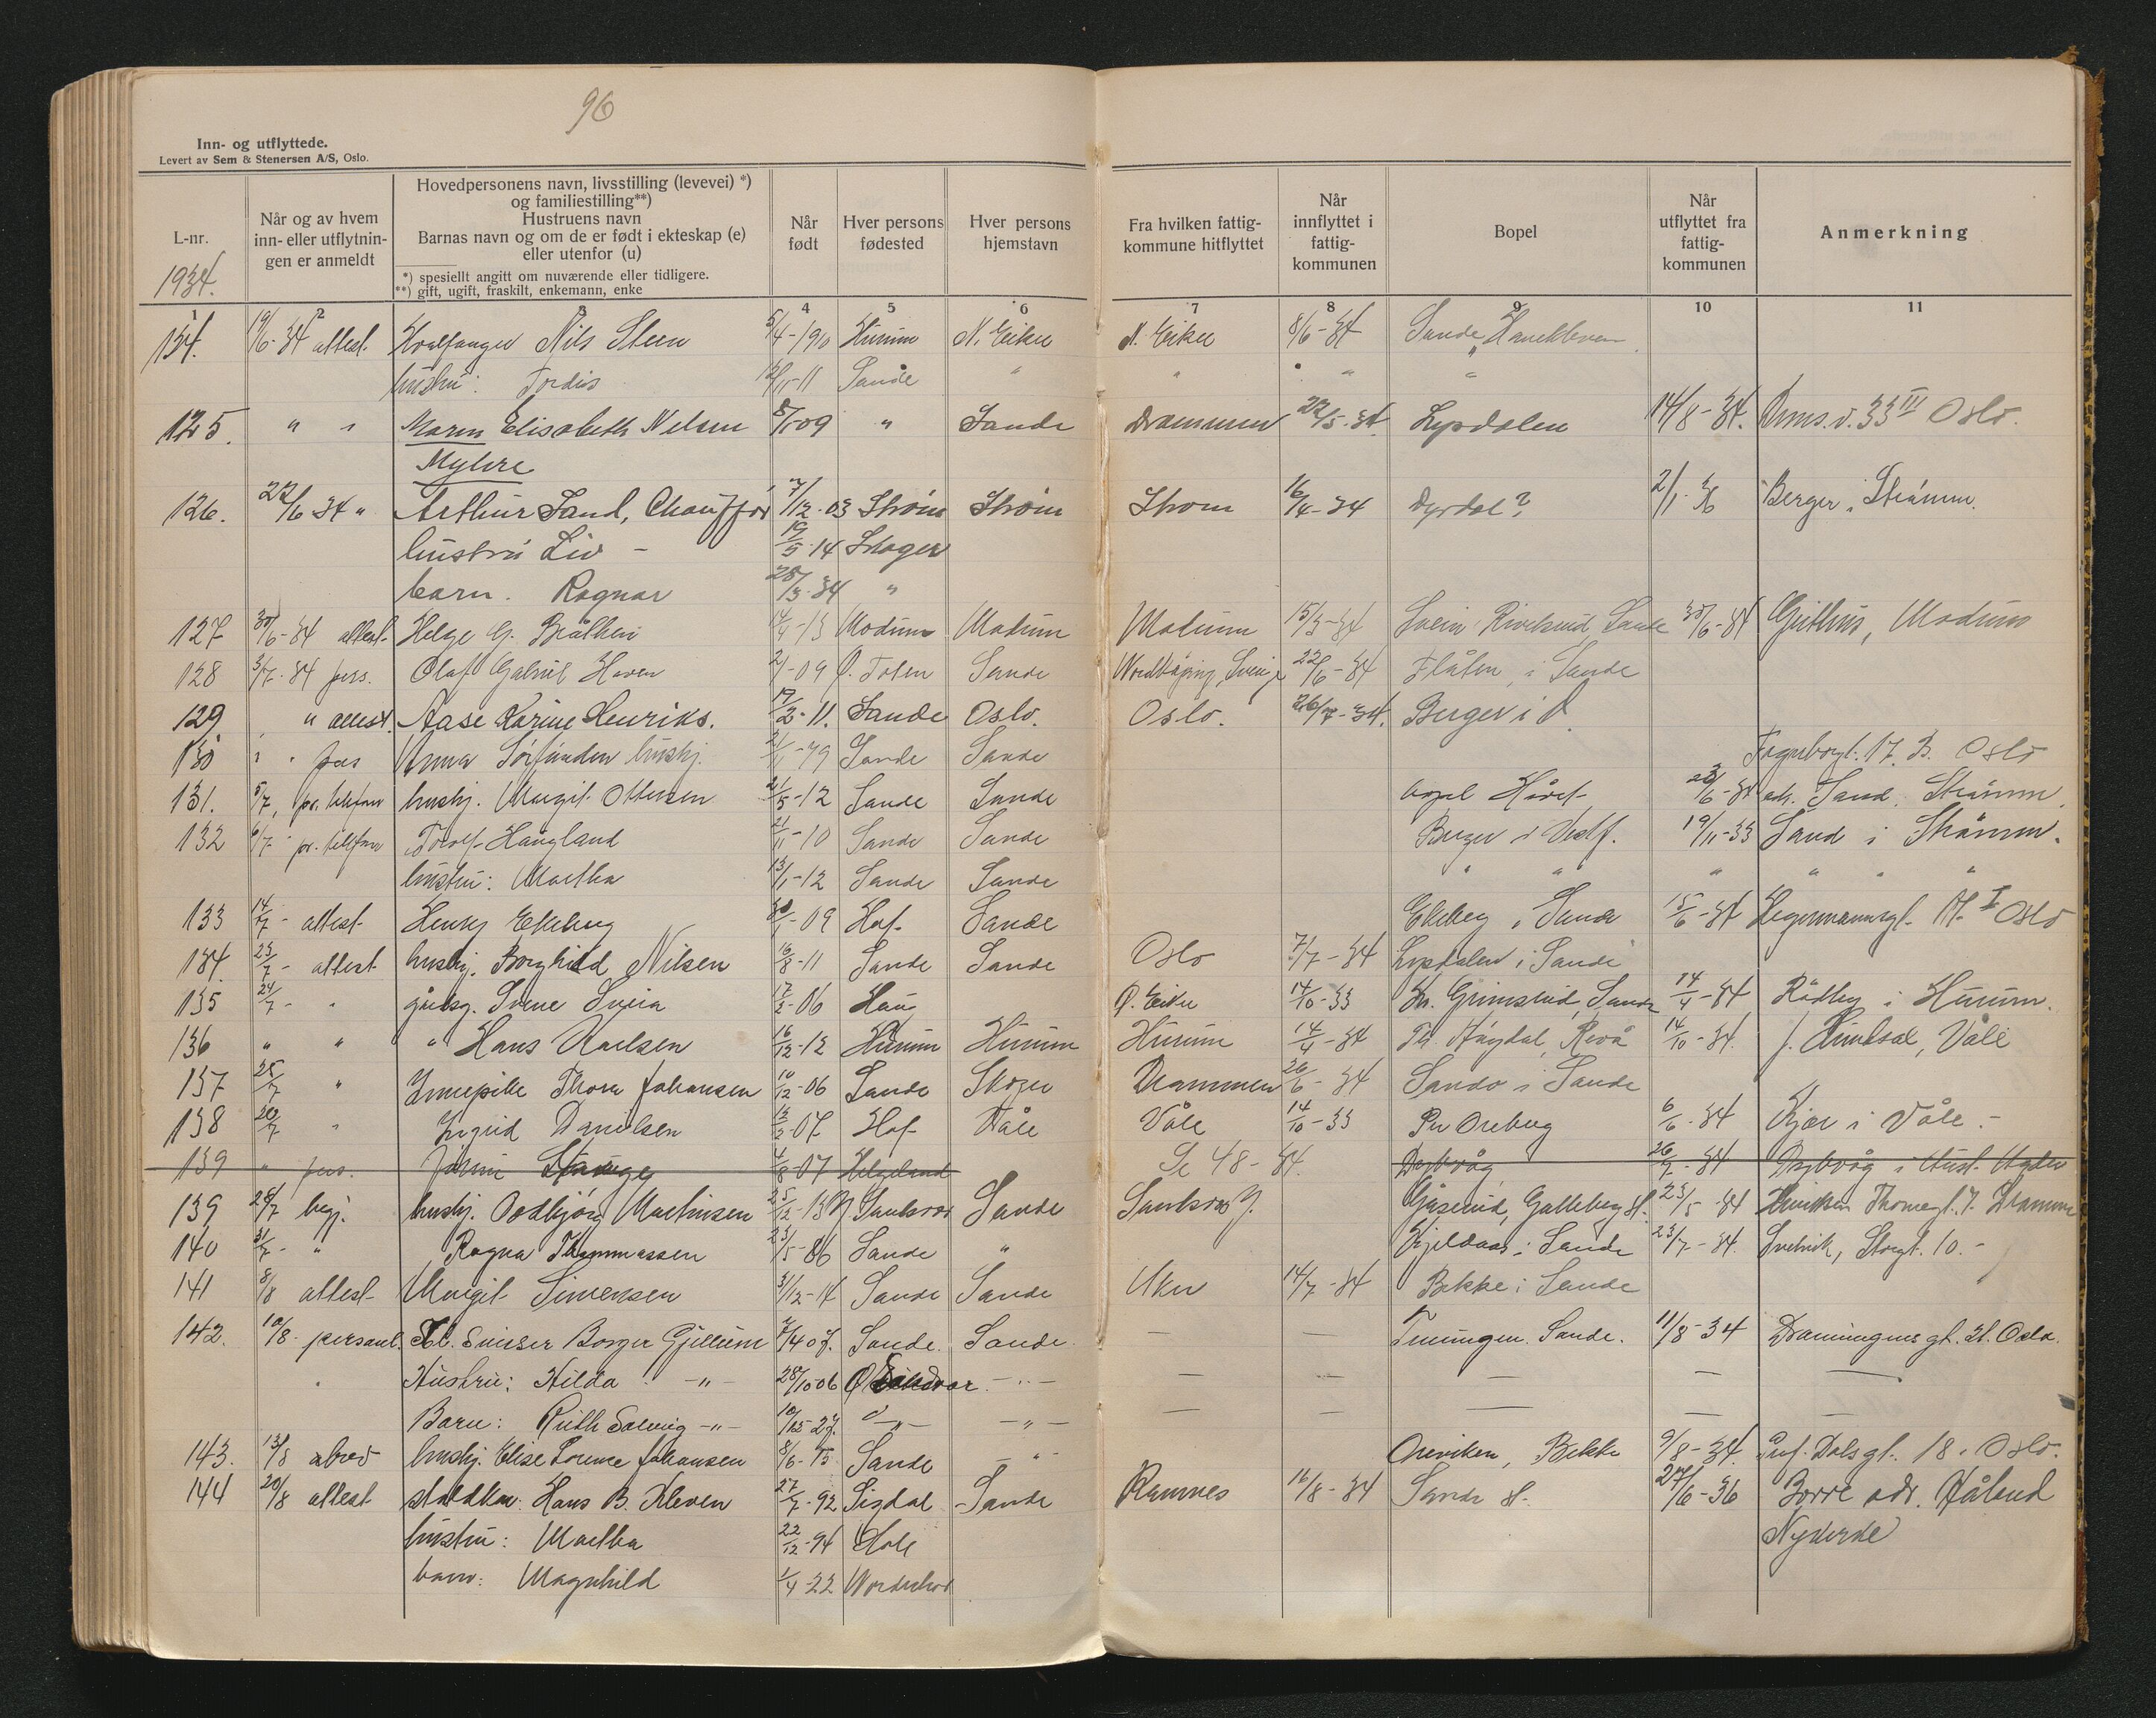 96
Inn- og utflyttede.
Levert av Sem & Stenersen A/S, Oslo.
L-nr.
1934.
Når og av hvem
inn- eller utflytnin-
gen er anmeldt
Hovedpersonens navn, livsstilling (levevei) *)
og familiestilling**)
Hustruens navn
Barnas navn og om de er født i ekteskap (e)
eller utenfor (u)
*) spesiellt angitt om nuværende eller tidligere.
**) gift, ugift, fraskilt, enkemann, enke
Når
født
Hver persons
fødested
Hver persons
hjemstavn
Fra hvilken fattig-
kommune hitflyttet
Når
innflyttet i
fattig-
kommunen
Bopel
Når
utflyttet fra
fattig-
kommunen
Anmerkning
1 2 4 5 6 7 8 9 10 11
19/6-34 attest. Hvalfanger Nils Steen 5/4-190 Hurum N. Eiker N. Eiker 8/6-34 Sande
hustru: Tordis 12/11-11 Sande " " " " "
125. " " Maren Elisabeth Nilsen 8/1-09 " Sande Drammen 22/5-34. Lysdalen 14/8-34. Drms.v. 33 III Oslo.
Myhre
126. 22/6 34 " Arthur Sand, Chauffør 7/12-03 Strøm Strøm Strøm 16/4-34 Dyrdal? 2/1-36 Berger i Strømm.
hustru Liv - 19/5-14 Skoger
barn. Ragnar 28/3-34 "
127 30/6-34 attest- Helge G. Bråthen 14/4-13 Modum Modum Modum 15/3-34 Svein Sande 30/6-34 Geithus, Modum
128 3/7-34 pers. Olaf Gabriel Haven 2/1-09 Ø. Toten Sande 22/6-34 Flåten, i Sande
129. " attest. Aase Karine Henriks. 17/2-11. Sande Oslo. Oslo. 26/7-34. Berger i
130 " " pers Anna husbj. 2/1-79 Sande Sande Fagerborgt. 17. B. Oslo
131. 5/7, pr. telefon husbj. Margit Ottersen 2/5-12 Sande Sande bopel 23/6-34 adr. Sand. Strømm.
132 6/7- pr. telefon Haugland 21/11-10 Sande Sande Berger i Vestf. 19/11-33 Sand i Strømm.
hustru: Martha 13/1-12 Sande Sande " " " " "
133 14/7- attest- Henry Ekeberg 30/1-09 Hof- Sande Ekeberg i Sande 15/6-34 I Oslo
134. 23/7- attest husbj. Borghild Nilsen 16/8-11 Sande Sande Oslo 7/7-34 Lysdalen i Sande
135 24/7- " gårdsg. 17/2-06 Haug Ø. Eiker 14/10-33 Kr. Grimsrud, Sande 14/4-34 Rødby i Hurum.
136 " " " Hans Karlsen 16/12-12 Hurum Hurum Hurum 14/4-34 14/10-34. Våle
137 25/7 " Innepike Thora Johansen 10/12-06 Sande Skoger Drammen 26/6-34 Sando i Sande
138 26/7 " Ingrid Danielsen 12/2-07 Hof Våle Våle 14/10-33 Per Oreberg 6/6-34 Kjær i Våle -
139 " pers. Stange 4/8-07 Helgeland Se 48-34. Dybvåg 26/7-34 Dybvåg i Aust-Agder
139 28/7 begj. husbj. Oddbjørg Martinsen 25/12-13 Sande Gåserud, Galleberg st. 23/5-34 Thornegt. 7. Drammen
140 31/7- " Ragna Thommassen 23/5-86 Sande " Kjeldaas i Sande 23/7-34. Svelvik, Storgt. 10.-
141 8/8 attest- Margit Simensen 31/12-14 Sande Sande Aker 14/7-34 Bekke i Sande
142. 10/8- personl. Borger Gjellum 7/4 07. Sande. Sande - - Sande. 11/8-34 Oslo.
Hustru: Hilda -"- 28/10 06 Ø -"- - - - - -
Barn: Ruth Solveig -"- 10/12-27. -"- -"- - - - - -
143. 13/8 brev husbj. Elise Johansen 8/6-15 Sande -"- Oreviken, Bekke 9/8-34. Prof. Dalsgt. 18. Oslo.
144 20/8 attest Hans B. Kleven 27/7-92 Sigdal Sande Ramnes 16/8-34 Sande st. 27/6-36 Borre adr. Håland
hustru: Martha 22/12-94 Hole Nykirke
barn: Magnhild 1/4-22